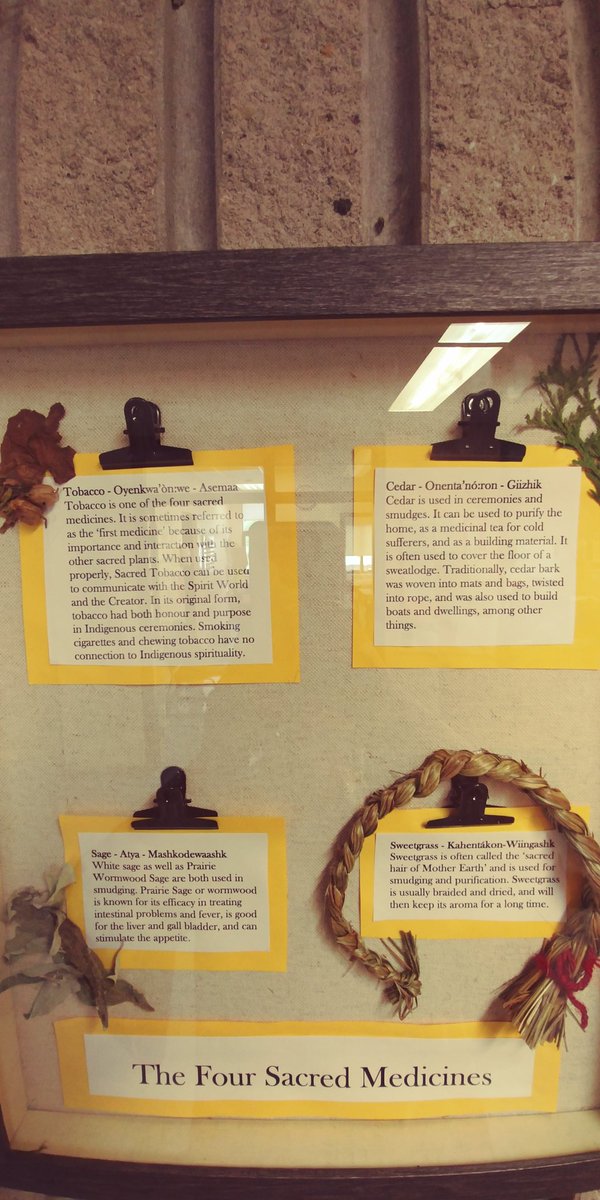 Tobacco - Oyenkwa'òn:we - Asemaa
Tobacco is one of the four sacred
medicines. It is sometimes referred to
as the 'first medicine' because of its
importance and interaction with the
other sacred plants. When used
properly, Sacred Tobacco can be used
to communicate with the Spirit World
and the Creator. In its original form,
tobacco had both honour and purpose
in Indigenous ceremonies. Smoking
cigarettes and chewing tobacco have no
connection to Indigenous spirituality.
Cedar - Onenta'nó:ron - Giizhik
Cedar is used in ceremonies and
smudges. It can be used to purify the
home, as a medicinal tea for cold
sufferers, and as a building material. It
is often used to cover the floor of a
sweatlodge. Traditionally, cedar bark
was woven into mats and bags, twisted
into rope, and was also used to build
boats and dwellings, among other
things.
Sage - Atya - Mashkodewaashk
White sage as well as Prairie
Wormwood Sage are both used in
smudging. Prairie Sage or wormwood
is known for its efficacy in treating
intestinal problems and fever, is good
for the liver and gall bladder, and can
stimulate the appetite.
Sweetgrass - Kahentákon-Wiingashk
Sweetgrass is often called the 'sacred
hair of Mother Earth' and is used for
smudging and purification. Sweetgrass
is usually braided and dried, and will
then keep its aroma for a long time.
The Four Sacred Medicines